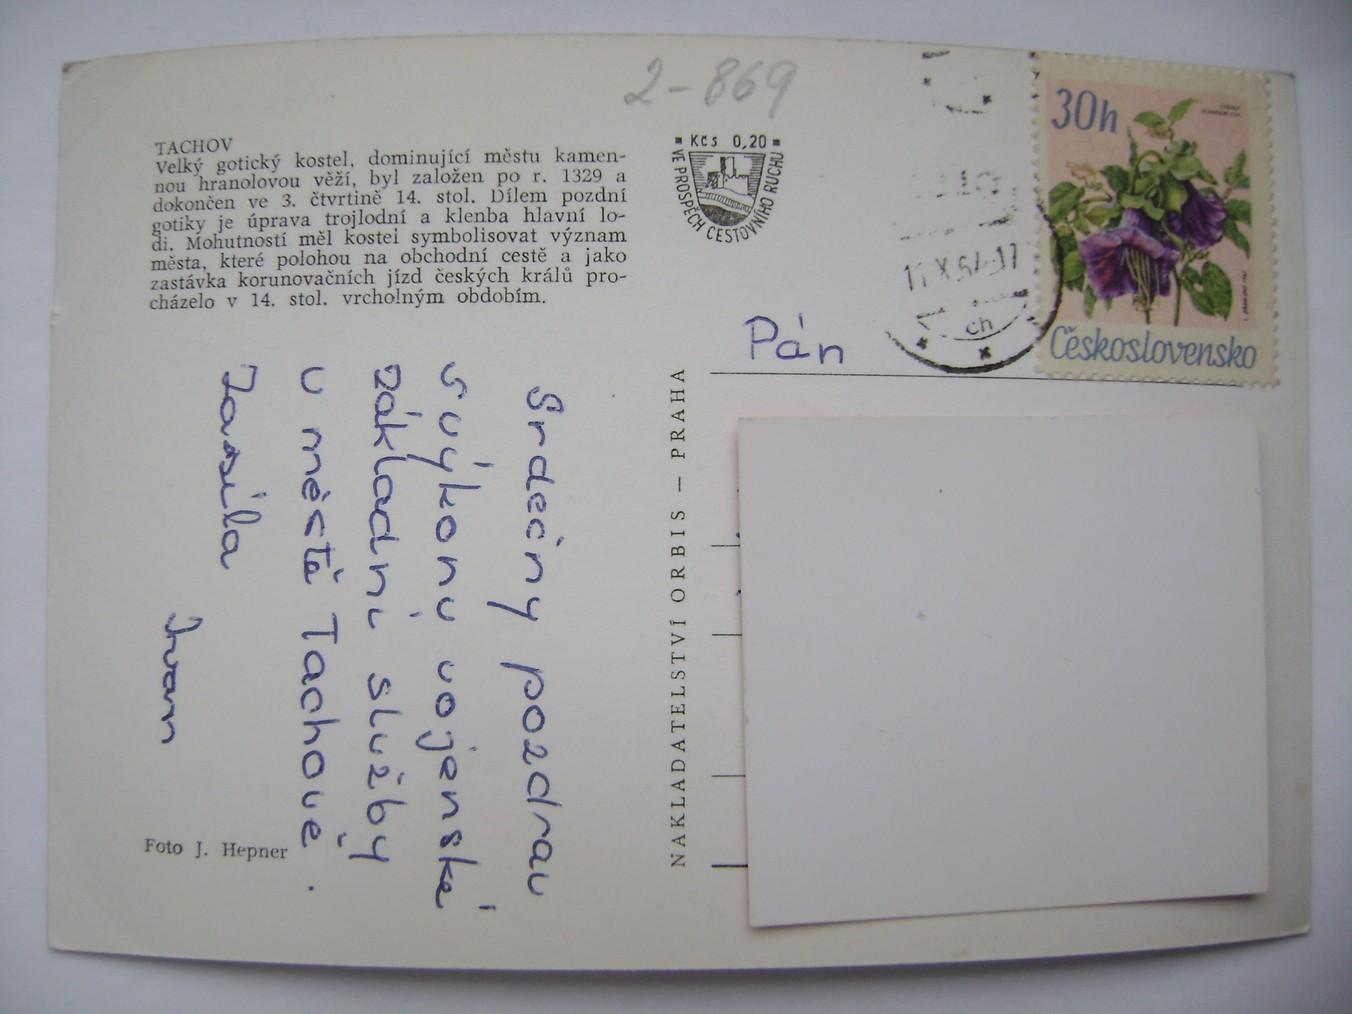 2-869
TACHOV
Velký gotický kostel, dominující městu kamen-
nou hranolovou věží, byl založen po r. 1329 a
dokončen ve 3. čtvrtině 14. stol. Dílem pozdní
gotiky je úprava trojlodní a klenba hlavní lo-
di. Mohutností měl kostel symbolisovat význam
města, které polohou na obchodní cestě a jako
zastávka korunovačních jízd českých králů pro-
cházelo v 14. stol. vrcholným obdobím.
Kčs 0,20
VE PROSPĚCH CESTOVNÍHO RUCHU
30h
Československo
Pán
Srdečný pozdrav
s výkonu vojenské
základní služby
v městě Tachově.
Zasílá
Ivan
NAKLADATELSTVÍ ORBIS — PRAHA
Foto J. Hepner